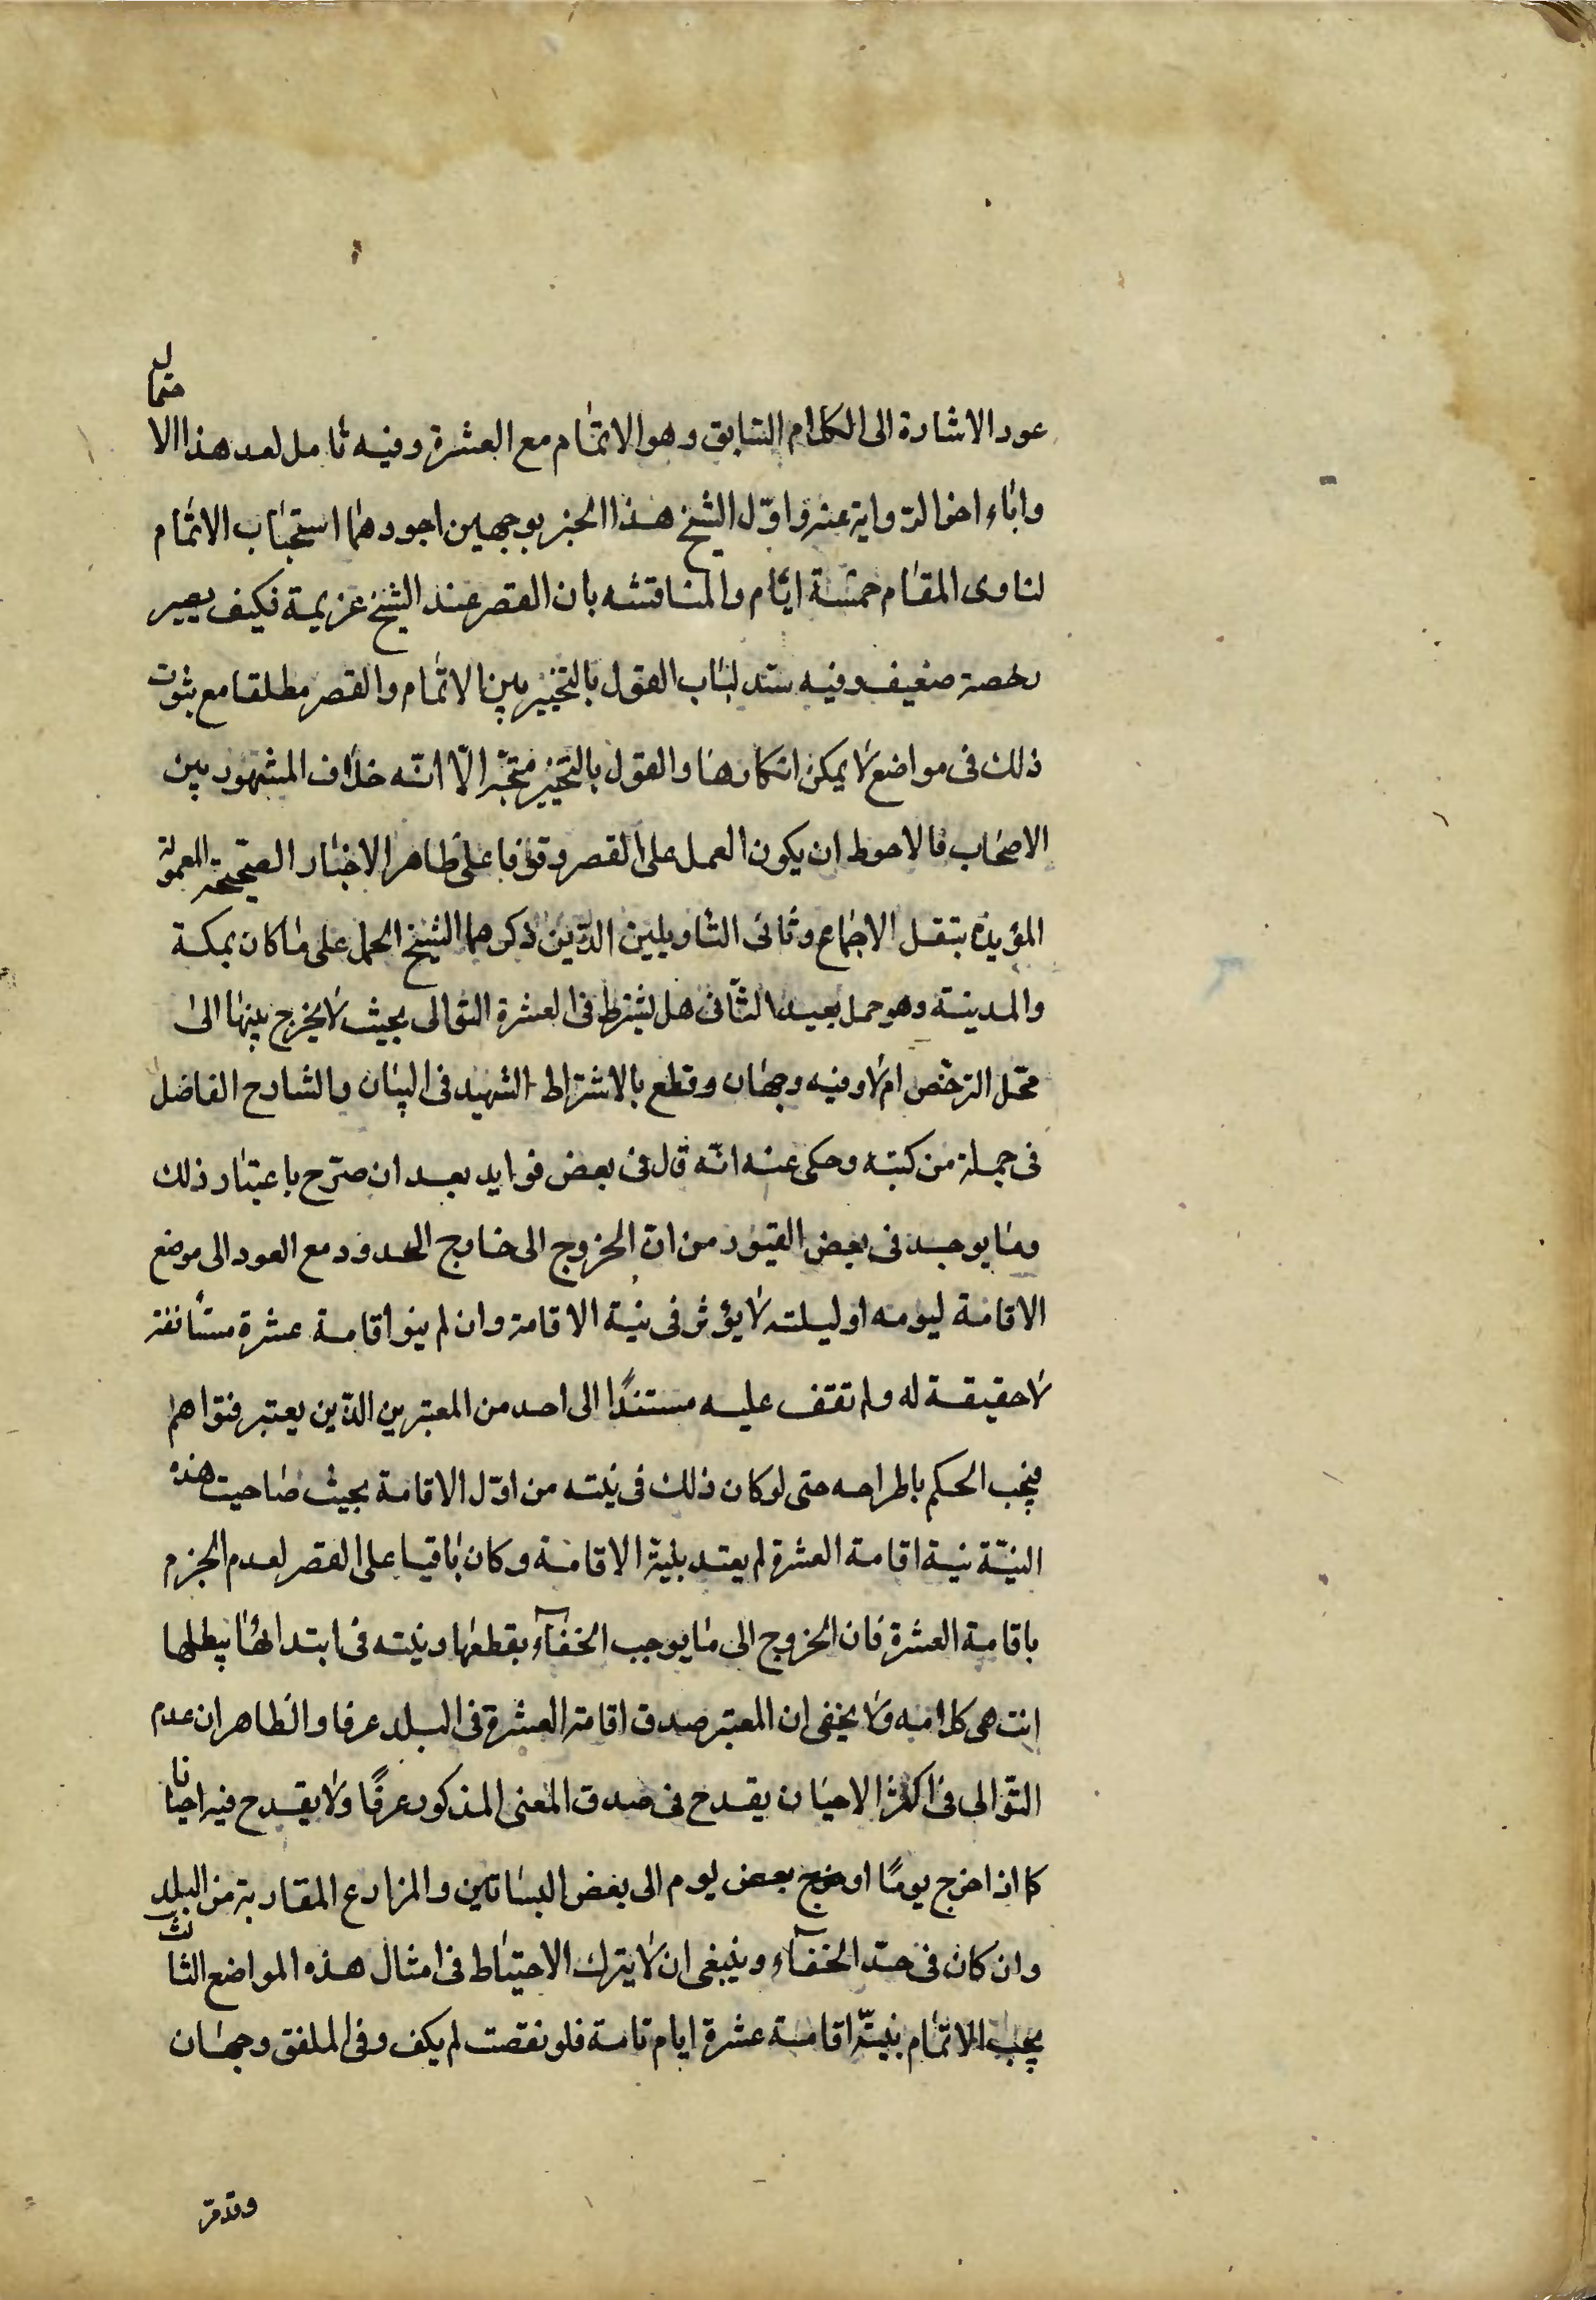 عود الاشارة الى الكلام السابق وهو الاتمام مع العشرة وفيه تامل لعد هذا الاحتمال
واباء اخر الرواية عنه واوّل الشيخ هذا الخبر بوجهين اجودهما استحباب الاتمام
لناوى المقام خمسة ايام والمناقشه بان القصر عند الشيخ عزيمة فكيف يصير
رخصة ضعيف وفيه سند لباب القول بالتخيير بين الاتمام والقصر مطلقا مع ثبوت
ذلك فى مواضع لا يمكن انكارها والقول بالتخيير متجه الّا انّه خلاف المشهور بين
الاصحاب فالاحوط ان يكون العمل على القصر وقوفا على ظاهر الاخبار الصحيحة المعمولة
المؤيدة بنقل الاجماع وثانى التاويلين الذين ذكرهما الشيخ الحمل على ما كان بمكة
والمدينة وهو حمل بعيد الثّانى هل يشترط فى العشرة التوالى بحيث لا يخرج بينها الى
محّل الترخّص ام لا وفيه وجهان وقطع بالاشتراط الشهيد فى البيان والشارح الفاضل
فى جملة من كتبه وحكى عنه انّه قال فى بعض فوايد بعد ان صرّح باعتبار ذلك
وما يوجد فى بعض القيود من انّ الخروج الى خارج الحدود مع العود الى موضع
الاقامة ليومه او ليلته لا يؤثر فى نية الاقامة وان لم ينو اقامة عشرة مستأنفة
لا حقيقة له ولم تقف عليه مستندًا الى احد من المعتبرين الذين يعتبر فتواهم
فيجب الحكم باطراحه حتى لو كان ذلك فى نيته من اوّل الاقامة بحيث صاحبت هذه
النيّة نية اقامة العشرة لم يعتد بنية الاقامة وكان باقيا على القصر لعدم الجزم
باقامة العشرة فان الخروج الى ما يوجب الخفاء يقطعها ونيته فى ابتدائها يبطلها
انتهى كلامه ولا يخفى ان المعتبر صدق اقامة العشرة فى البلد عرفا والظاهر ان عدم
التّوالى فى اكثر الاحيان يقدح فى صدق المعنى المذكور عرفًا ولا يقدح فيه احيانا
كما اذا خرج يومًا او خرج بعض يوم الى بعض البساتين والمزارع المقاربة من البلد
وان كان فى حدّ الخفاء وينبغى ان لا يترك الاحتياط فى امثال هذه المواضع الثالث
يجب الاتمام بنيّة اقامة عشرة ايام تامة فلو نقصت لم يكف وفى الملفق وجهان
وقد مر